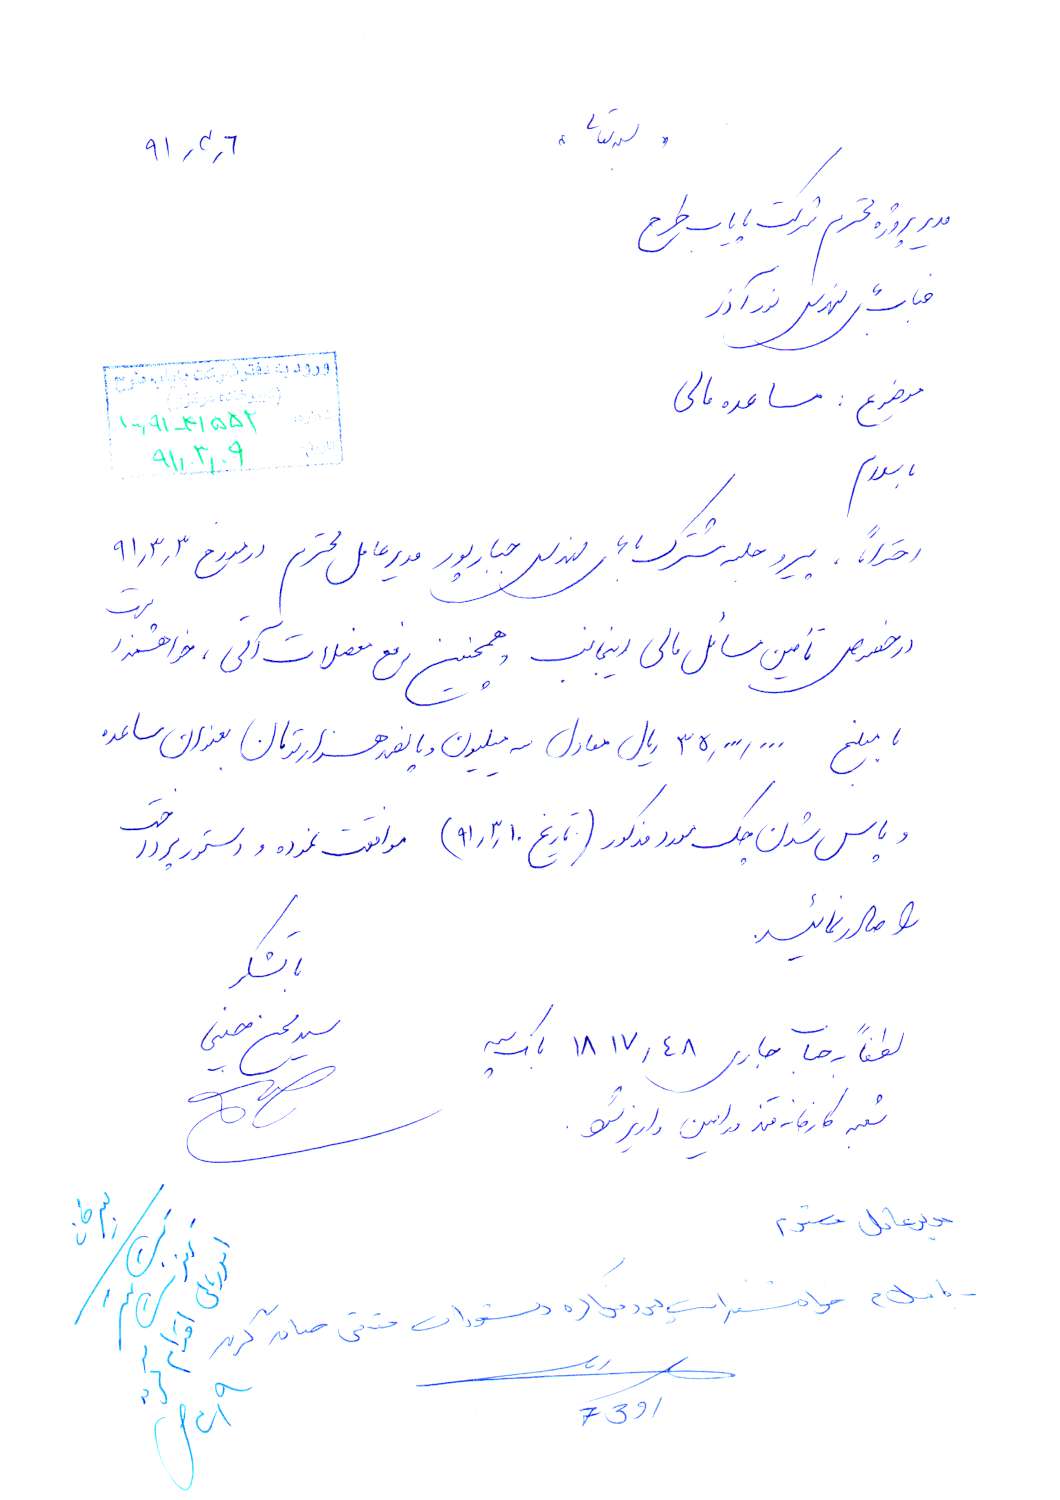 بسمه تعالی
۹۱٫۳٫۶
مدیر پروژه محترم شرکت پایاب طرح
جناب آقای مهندس نورآذر
موضوع : مساعده مالی
ورود به دفتر شرکت پایاب طرح
۹۱٫۰۳٫۰۹
با سلام
احتراماً ، پیرو جلسه مشترک با آقای مهندس جبارپور مدیرعامل محترم در مورخ ۹۱٫۳٫۳
در خصوص تأمین مسائل مالی اینجانب و همچنین رفع معضلات آتی ، خواهشمند است
با مبلغ ۳۵٫۰۰۰٫۰۰۰ ریال معادل سه میلیون و پانصد هزار تومان) بعنوان مساعده
و پاس شدن چک مورد مذکور (تاریخ ۹۱٫۳٫۱۰) موافقت نموده و دستور پرداخت
را صادر نمائید.
با تشکر
سید محسن
لطفاً به حساب جاری ۱۸۱۷٫۴۸ بانک سپه
شعبه کارخانه قند ورامین واریز شود .
مدیرعامل محترم
- با سلام خواهشمند است در مورد دستورات مقتضی صادر گردد